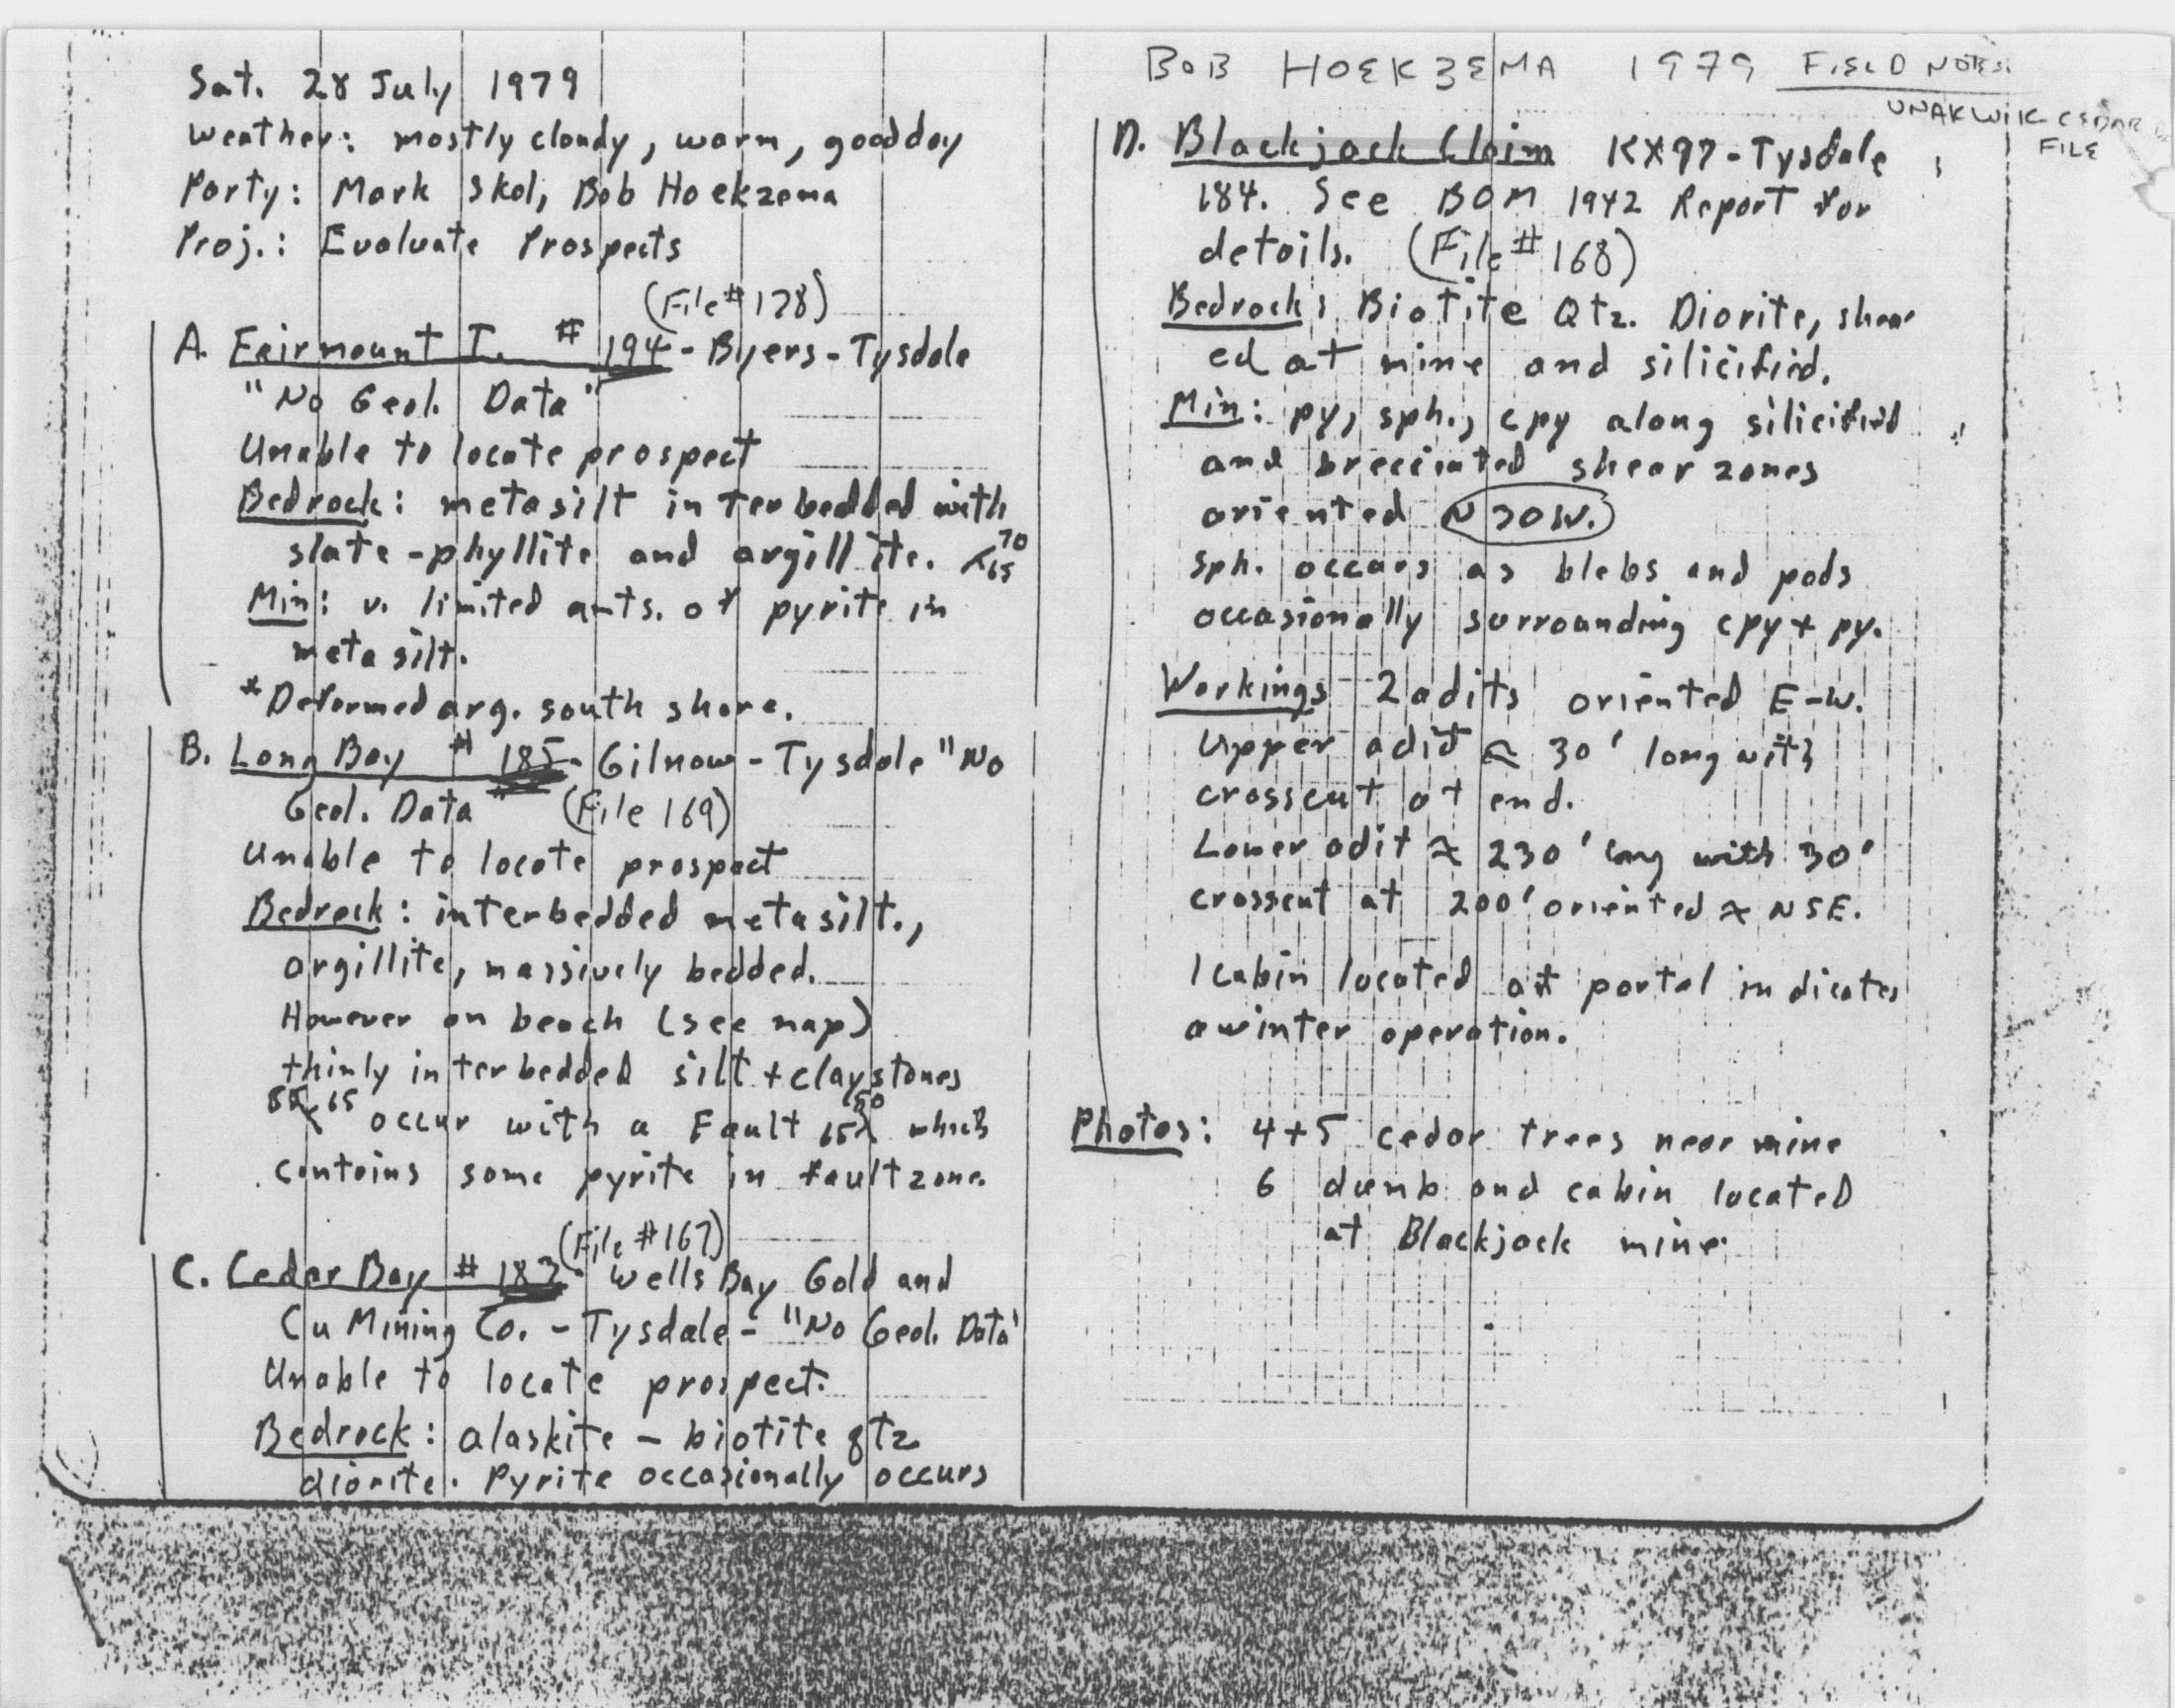 Sat. 28 July 1979
Weather: mostly cloudy, warm, good day
Party: Mark Skol, Bob Hoekzema
Proj.: Evaluate Prospects
(File # 178)
A. Fairmount I. # 194 - Byers - Tysdale
"No Geol. Data"
Unable to locate prospect
Bedrock: metasilt interbedded with
slate - phyllite and argillite. 70 65
Min: v. limited amts. of pyrite in
metasilt.
*Deformed arg. south shore.
B. Long Bay # 185 - Gilnow - Tysdale "No
Geol. Data" (File 169)
Unable to locate prospect
Bedrock: interbedded metasilt.,
argillite, massively bedded.
However on beach (see map)
thinly interbedded silt + claystones
65 occur with a Fault 65 which
contains some pyrite in fault zone.
(File # 167)
C. Cedar Bay # 183 - Wells Bay Gold and
Cu Mining Co. - Tysdale - "No Geol. Data"
Unable to locate prospect.
Bedrock: alaskite - biotite qtz
diorite. Pyrite occasionally occurs
BOB HOEKZEMA 1979 FIELD NOTES
UNAKWIK CEDAR
FILE
D. Blackjack Claim KX97 - Tysdale
184. See BOM 1942 Report for
details. (File # 168)
Bedrock: Biotite Qtz. Diorite, shear
ed at mine and silicified.
Min: py, sph., cpy along silicified
and brecciated shear zones
oriented N 70 W.
Sph. occurs as blebs and pods
occasionally surrounding cpy + py.
Workings 2 adits oriented E-W.
Upper adit ≈ 30' long with
crosscut at end.
Lower adit ≈ 230' long with 30'
crosscut at 200' oriented ≈ N5E.
1 cabin located at portal indicates
a winter operation.
Photos: 4+5 cedar trees near mine
6 dump and cabin located
at Blackjack mine